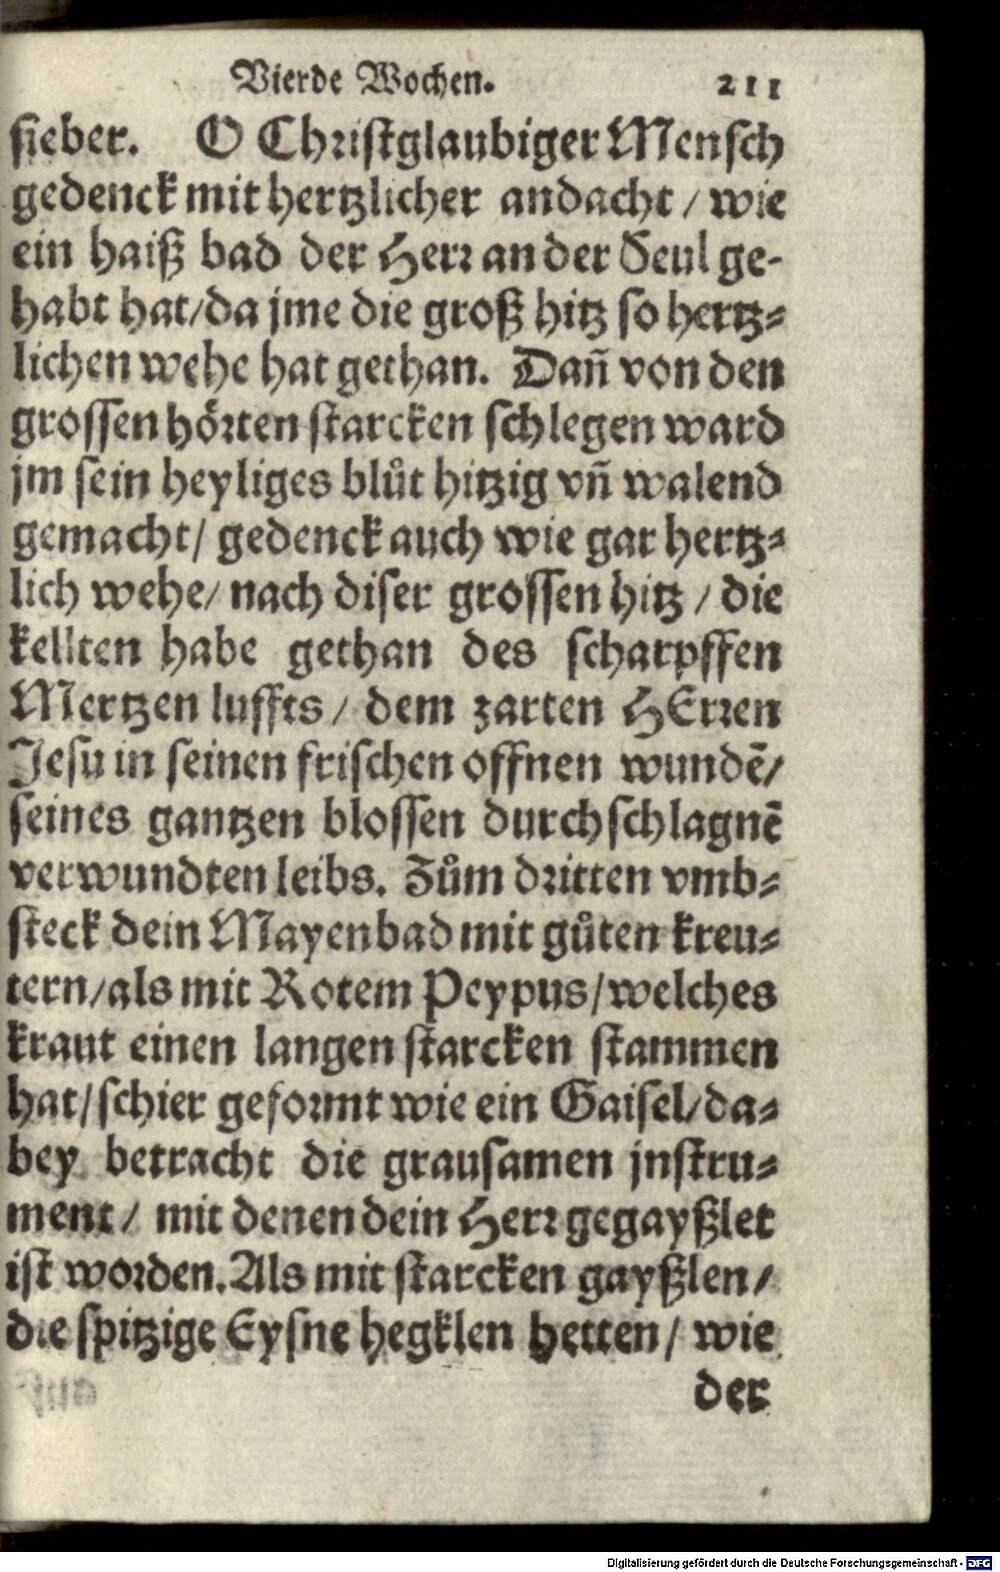 Vierde Wochen. 211
sieber. O Christglaubiger Mensch
gedenck mit hertzlicher andacht / wie
ein haiß bad der Herr an der Seul ge-
habt hat/da jme die groß hitz so hertz-
lichen wehe hat gethan. Dañ von den
grossen hörten starcken schlegen ward
jm sein heyliges blůt hitzig vñ walend
gemacht/ gedenck auch wie gar hertz-
lich wehe/ nach diser grossen hitz / die
kellten habe gethan des scharpffen
Mertzen luffts / dem zarten HErren
Jesu in seinen frischen offnen wundē/
seines gantzen blossen durchschlagnē
verwundten leibs. Zům dritten vmb-
steck dein Mayenbad mit gůten kreu-
tern/als mit Rotem Peypus/welches
kraut einen langen starcken stammen
hat/schier geformt wie ein Gaisel/da-
bey betracht die grausamen jnstru-
ment / mit denen dein Herr gegayßlet
ist worden. Als mit starcken gayßlen/
die spitzige Eysne hegklen hetten/ wie
der
Digitalisierung gefördert durch die Deutsche Forschungsgemeinschaft - DFG